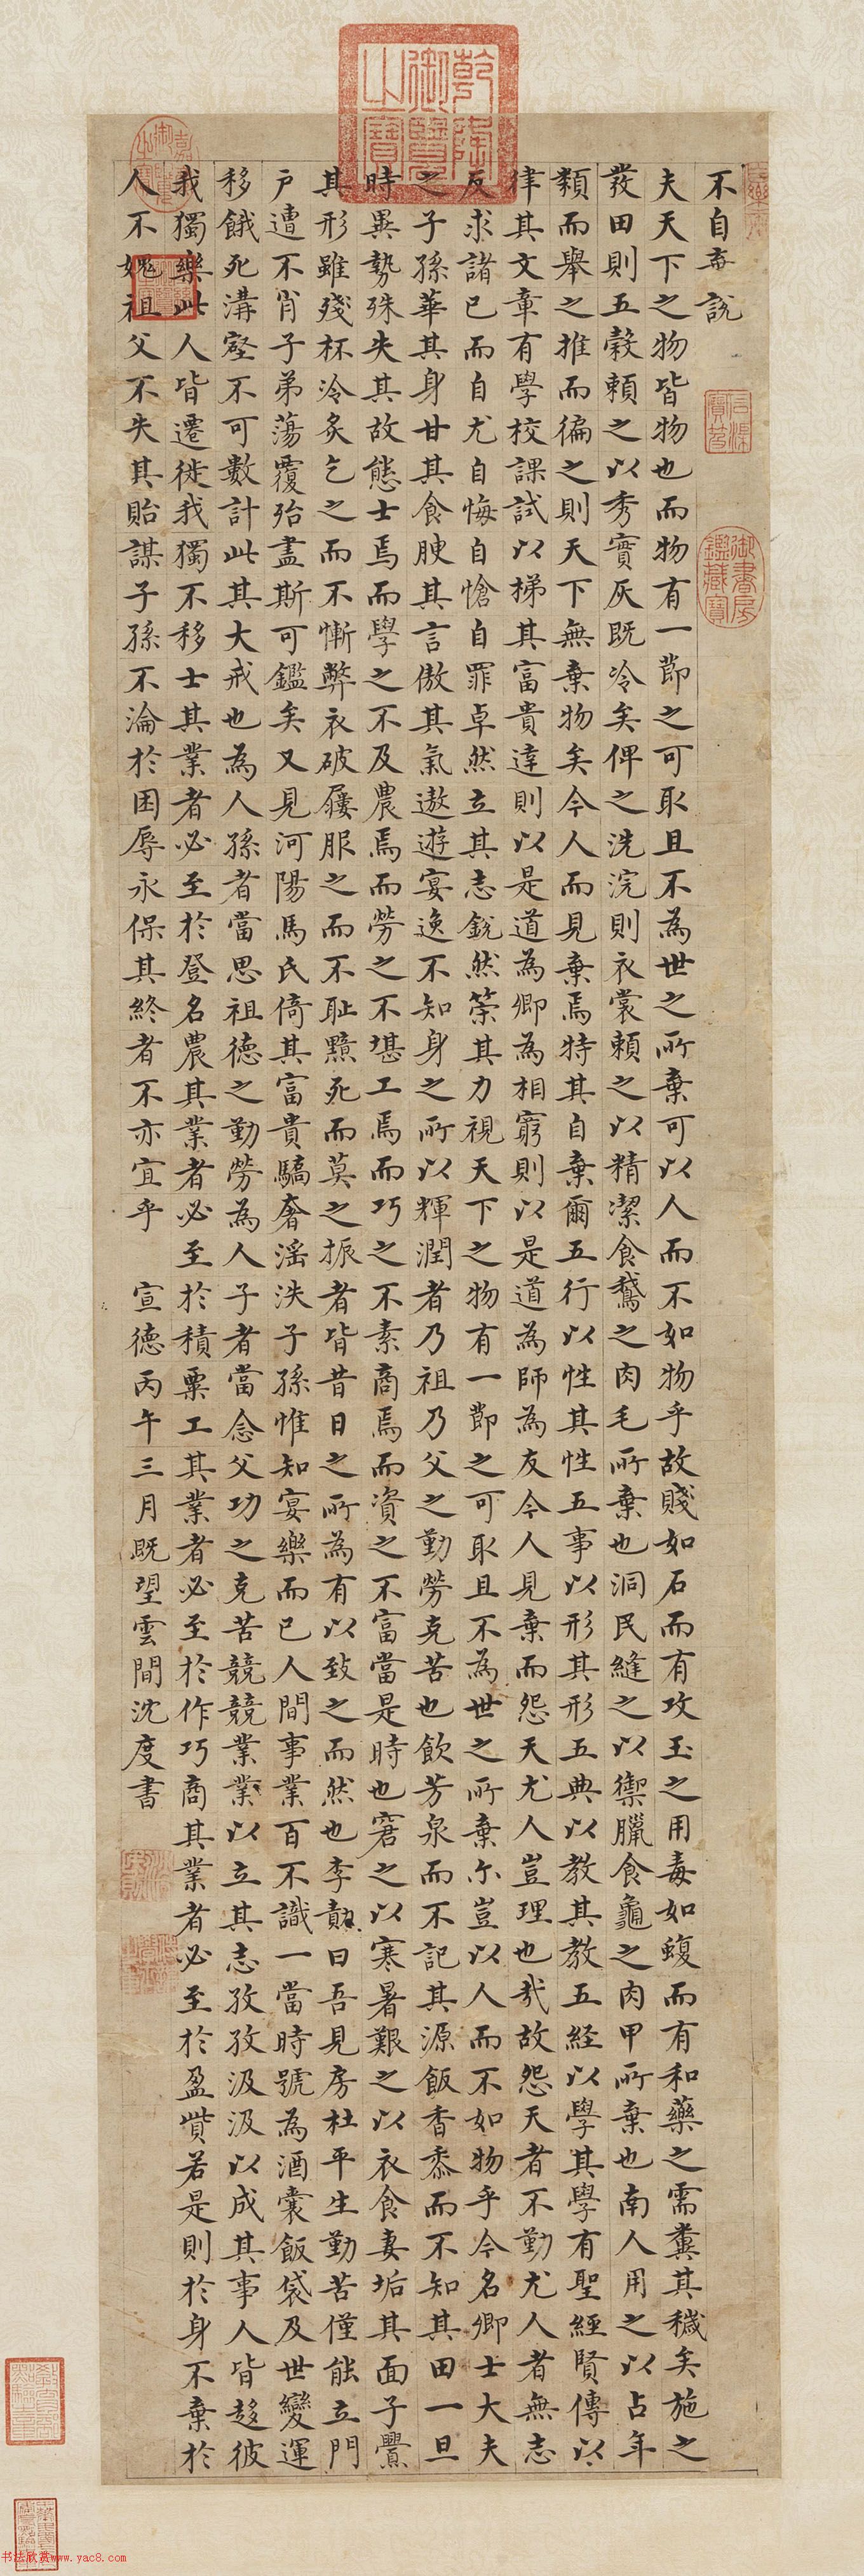 不自棄說
夫天下之物皆物也而物有一節之可取且不為世之所棄可以人而不如物乎故賤如石而有攻玉之用毒如蝮而有和藥之需糞其穢矣施之
發田則五穀賴之以秀實灰既冷矣俾之洗浣則衣裳賴之以精潔食鵞之肉毛所棄也洞民縫之以禦臘食龜之肉甲所棄也南人用之以占年
類而舉之推而徧之則天下無棄物矣今人而見棄焉特其自棄爾五行以性其性五事以形其形五典以教其教五経以學其學有聖經賢傳以
律其文章有學校課試以梯其富貴達則以是道為卿為相窮則以是道為師為友今人見棄而怨天尤人豈理也哉故怨天者不勤尤人者無志
反求諸己而自尤自悔自愴自罪卓然立其志銳然策其力視天下之物有一節之可取且不為世之所棄尒豈以人而不如物乎今名卿士大夫
之子孫華其身甘其食腴其言傲其氣遨遊宴逸不知身之所以輝潤者乃祖乃父之勤勞克苦也飲芳泉而不記其源飯香黍而不知其田一旦
時異勢殊失其故態士焉而學之不及農焉而勞之不堪工焉而巧之不素商焉而資之不富當是時也窘之以寒暑艱之以衣食妻垢其面子釁
其形雖殘杯冷炙乞之而不慚弊衣破屨服之而不耻黯死而莫之振者皆昔日之所為有以致之而然也李勣曰吾見房杜平生勤苦僅能立門
戶遭不肖子弟蕩覆殆盡斯可鑑矣又見河陽馬氏倚其富貴驕奢淫泆子孫惟知宴樂而已人間事業百不識一當時號為酒囊飯袋及世變運
移餓死溝壑不可數計此其大戒也為人孫者當思祖德之勤勞為人子者當念父功之克苦競競業業以立其志孜孜汲汲以成其事人皆趍彼
我獨樂此人皆遷徙我獨不移士其業者必至於登名農其業者必至於積粟工其業者必至於作巧商其業者必至於盈貲若是則於身不棄於
人不媿祖父不失其貽謀子孫不淪於困辱永保其終者不亦宜乎 宣德丙午三月既望雲間沈度書
乾隆御覽之寶
石渠寶笈
御書房鑑藏寶
书法欣赏www.yac8.com